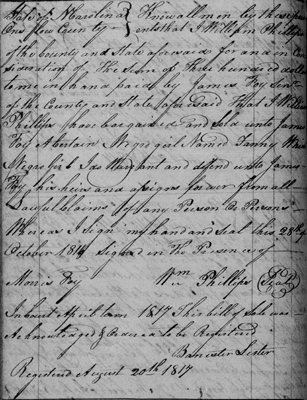 State of N Carolina } Know all men by these pres
Onslow County } ents that I William Phillips
of the County and State aforesaid for and in con
sideration of the sum of three hundred dollars
to me in hand paid by James Foy Senr
of the County and State aforesaid that I Wm
Phillips have bargained and sold unto James
Foy a Certain Negro girl Named Fanny Which
Negro girl I do warrant and defend unto James
Foy his heirs and assigns forever from all
Lawful Claims of any Person or Persons
Whereas I sign my hand and seal this 28th
October 1814 signed in the Presence of
Morris Foy Wm Phillips (Seal)
In Court April term 1817 This bill of sale was
Acknowledged & Ordered to be Registered
Bannester Lester
Registered August 20th 1817